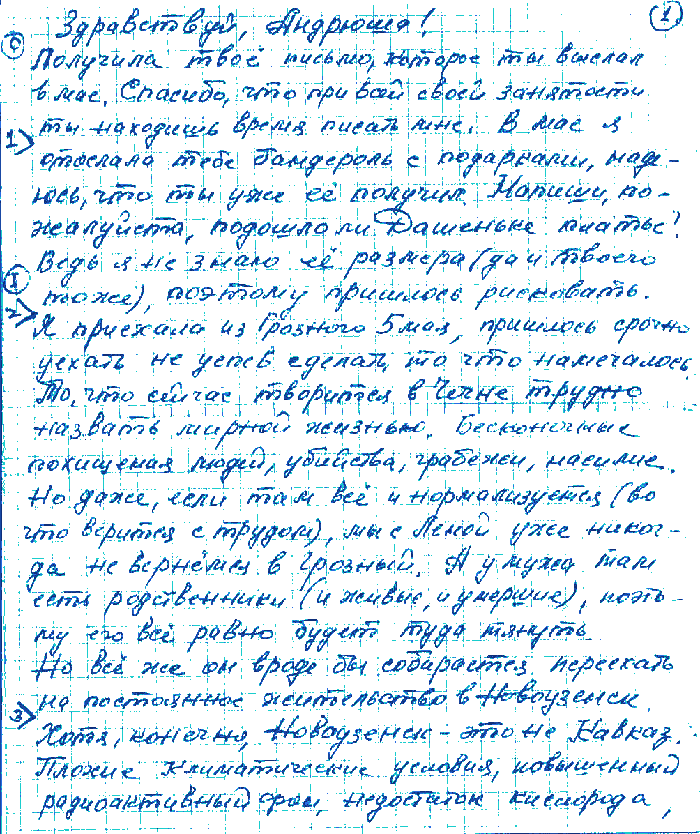 Здравствуй, Андрюша! 1
0
Получила твоё письмо, которое ты выслал
в мае. Спасибо, что при всей своей занятости
1> ты находишь время писать мне. В мае я
отослала тебе бандероль с подарками, наде-
юсь, что ты уже её получил. Напиши, по-
жалуйста, подошло ли Дашеньке платье?
Ведь я не знаю её размера (да и твоего
I
тоже), поэтому пришлось рисковать.
2> Я приехала из Грозного 5 мая, пришлось срочно
уехать не успев сделать, то что намечалось.
То, что сейчас творится в Чечне трудно
назвать мирной жизнью. Бесконечные
похищения людей, убийства, грабежи, насилие.
Но даже, если там всё и нормализуется (во
что верится с трудом), мы с Леной уже никог-
да не вернёмся в Грозный. А у мужа там
есть родственники (и живые, и умершие), поэто-
му его всё равно будет туда тянуть
Но всё же он вроде бы собирается переехать
на постоянное жительство в Новоузенск.
3> Хотя, конечно, Новоузенск - это не Кавказ.
Плохие климатические условия, повышенный
радиоактивный фон, недостаток кислорода,